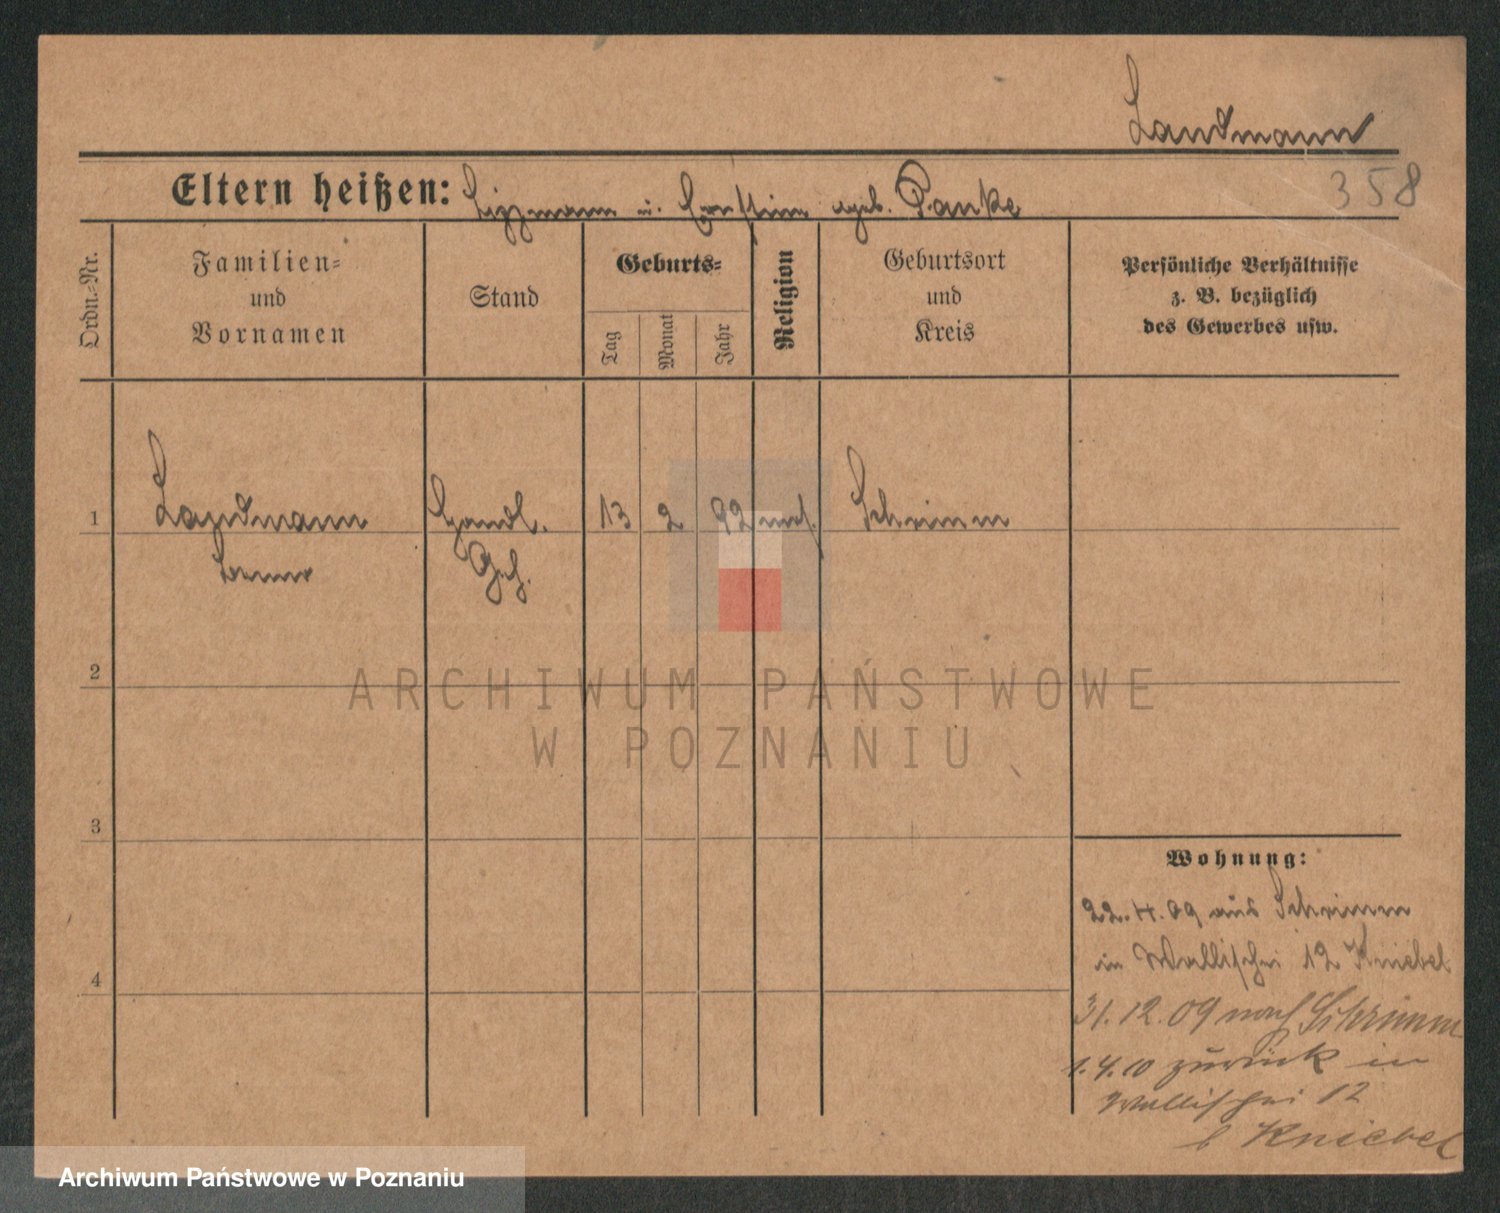 Landmann
358
Eltern heißen: u. geb. Panke
Ordn.-Nr.
Familien-
und
Vornamen
Stand
Geburts-
Tag
Monat
Jahr
Religion
Geburtsort
und
Kreis
Persönliche Verhältnisse
z. B. bezüglich
des Gewerbes usw.
1
Landmann
Handl.
Geh.
13
2
92
Schrimm
2
3
4
ARCHIWUM PAŃSTWOWE
W POZNANIU
Wohnung:
22.4.09 aus Schrimm
in Wallischei 12 Kniebel
31.12.09 nach Schrimm
1.4.10 zurück in
Wallischei 12
b Kniebel
Archiwum Państwowe w Poznaniu